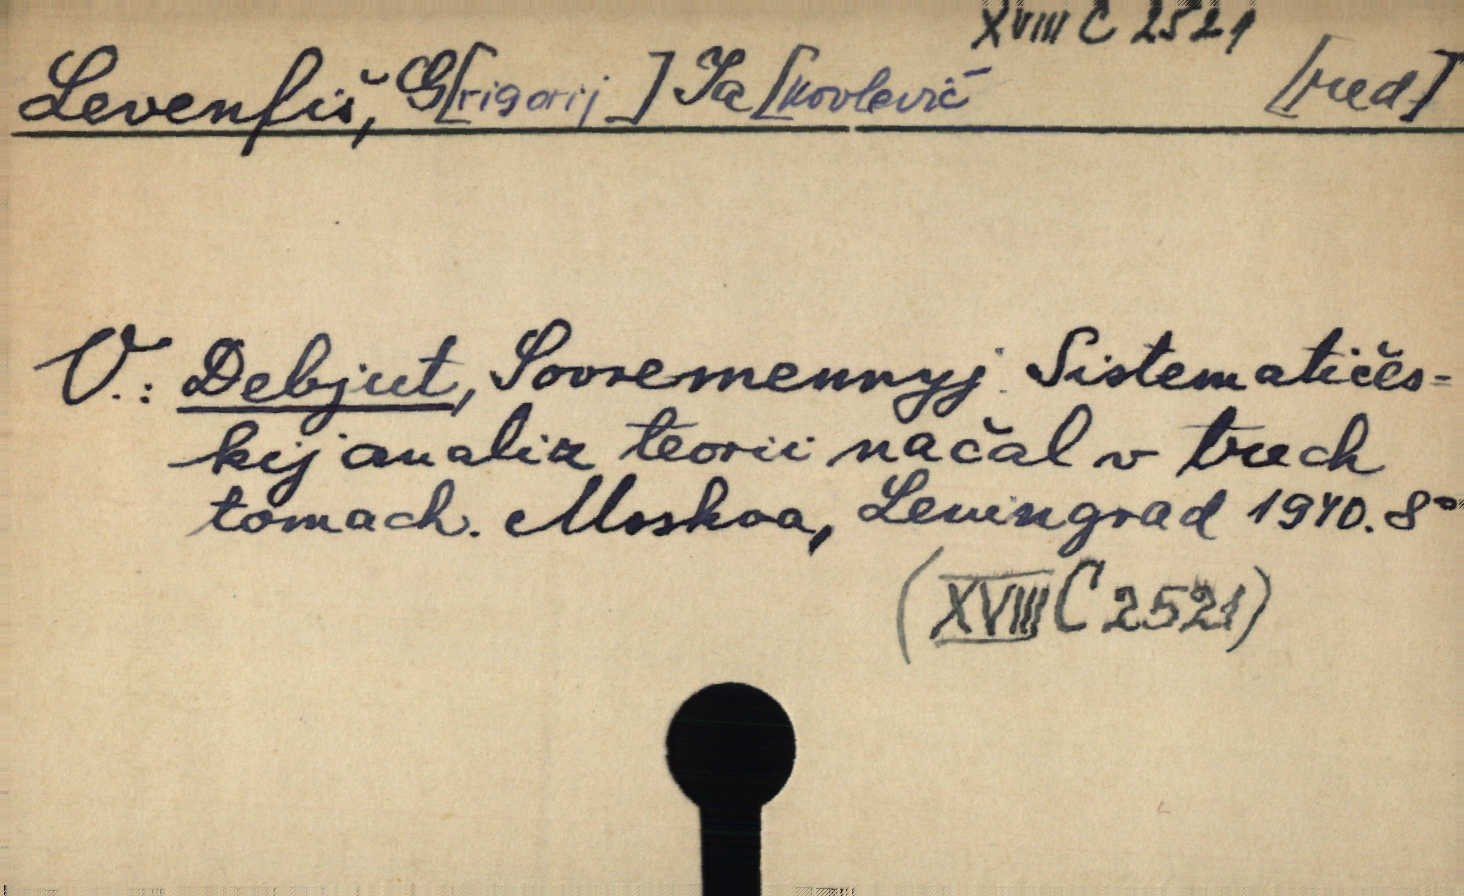 XVIII C 2521
Levenfiš, G[rigorij] Ja[kovlevič [red.]
V.: Debjut, Sovremennyj. Sistematičes-
kij analiz teorii načal v trech
tomach. Moskva, Leningrad 1940. 8°
(XVIII C 2521)